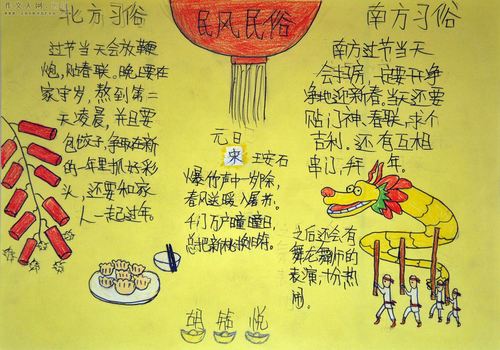 北方习俗
过节当天会放鞭
炮,贴春联。晚上要在
家守岁,熬到第二
天凌晨,并且要
包饺子,争取在新
的一年里抓好彩
头,还要和家
人一起过年。
民风民俗
元日
宋 王安石
爆竹声中一岁除,
春风送暖入屠苏。
千门万户曈曈日,
总把新桃换旧符。
南方习俗
南方过节当天
会扫房,一定要干净
净地迎新春。当天还要
贴门神、春联,求个
吉利。还有互相
串门,拜年。
之后还会有
舞龙舞狮的
表演,十分热
闹。
悦